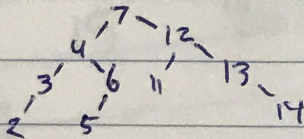 7
4 12
3 6 11 13
2 5 14